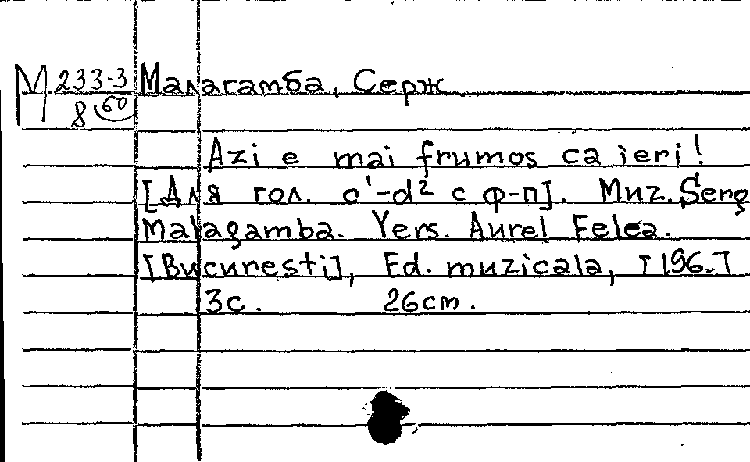 М 233-3 Малагамба, Серж.
8 60
Azi e mai frumos ca ieri!
[Для гол. o'-d² с ф-п]. Muz. Serg
Malagamba. Vers. Aurel Felea.
[Bucuresti], Ed. muzicala, [196.]
3c. 26cm.